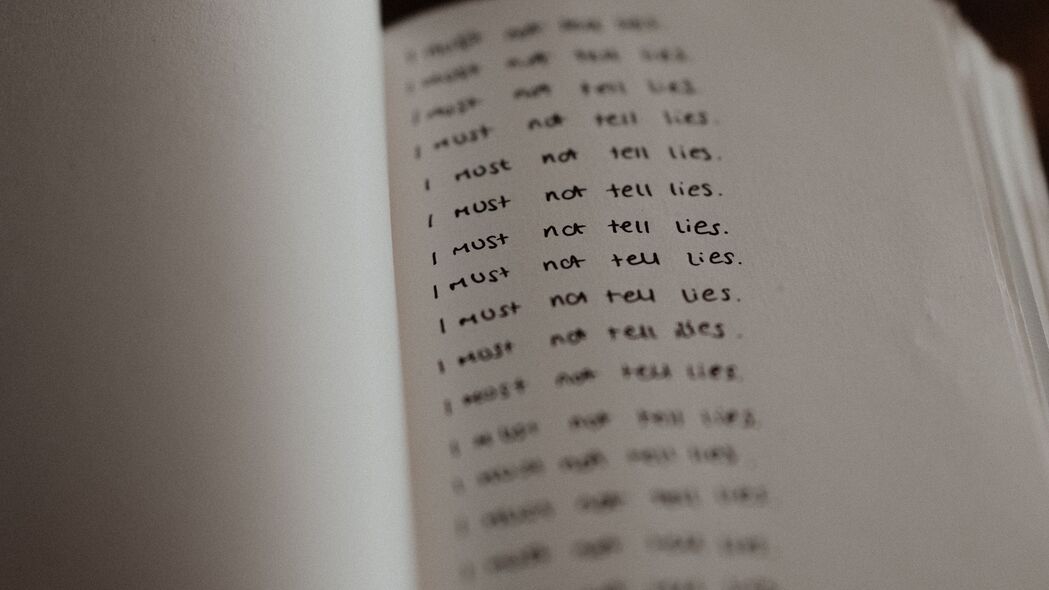 I must not tell lies.
I must not tell lies.
I must not tell lies.
I must not tell lies.
I must not tell lies.
I must not tell lies.
I must not tell lies.
I must not tell lies.
I must not tell lies.
I must not tell lies.
I must not tell lies.
I must not tell lies.